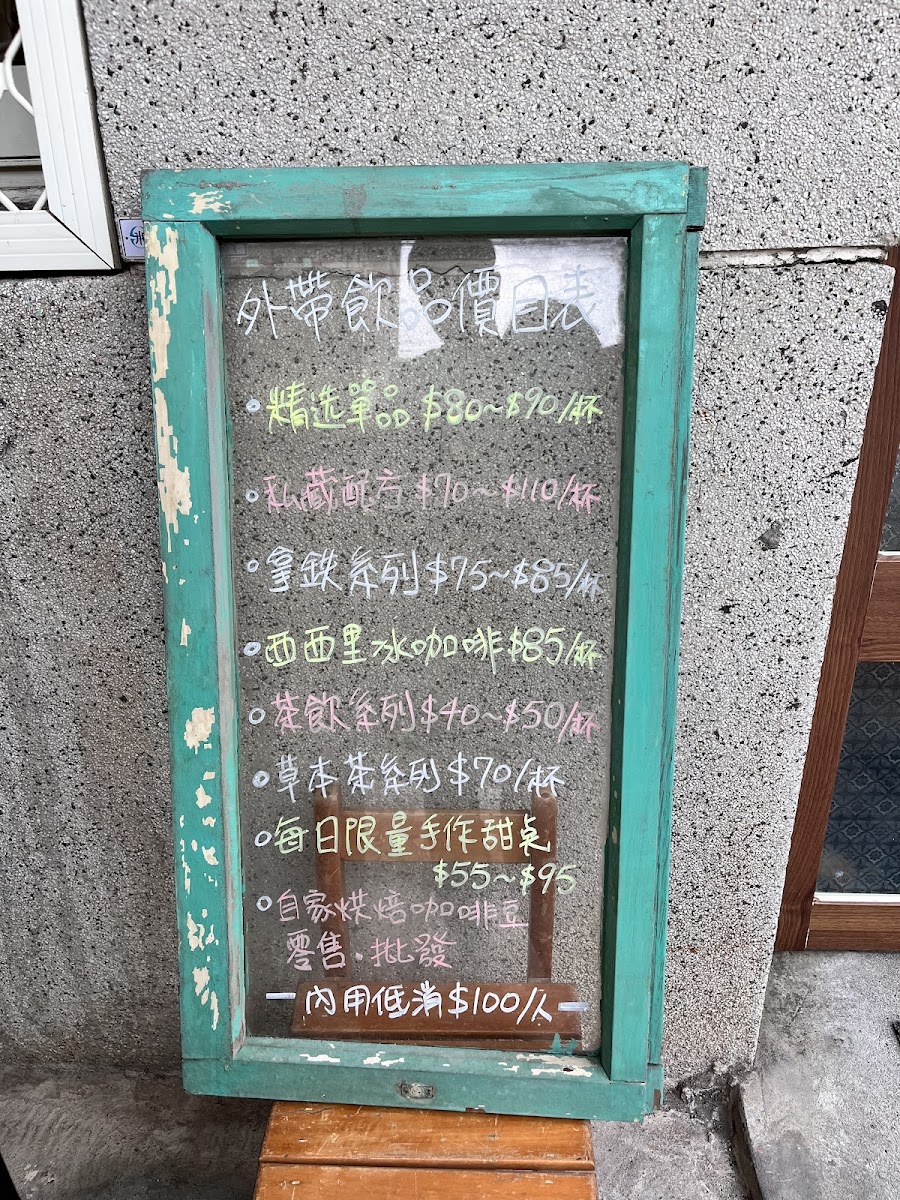 外帶飲品價目表
精选單品 $80~$90/杯
私藏配方 $70~$110/杯
拿鉄系列 $75~$85/杯
西西里冰咖啡 $85/杯
茶飲系列 $40~$50/杯
草本茶系列 $70/杯
每日限量手作甜桌
$55~$95
自家烘焙咖啡豆
零售·批發
內用低消 $100/人